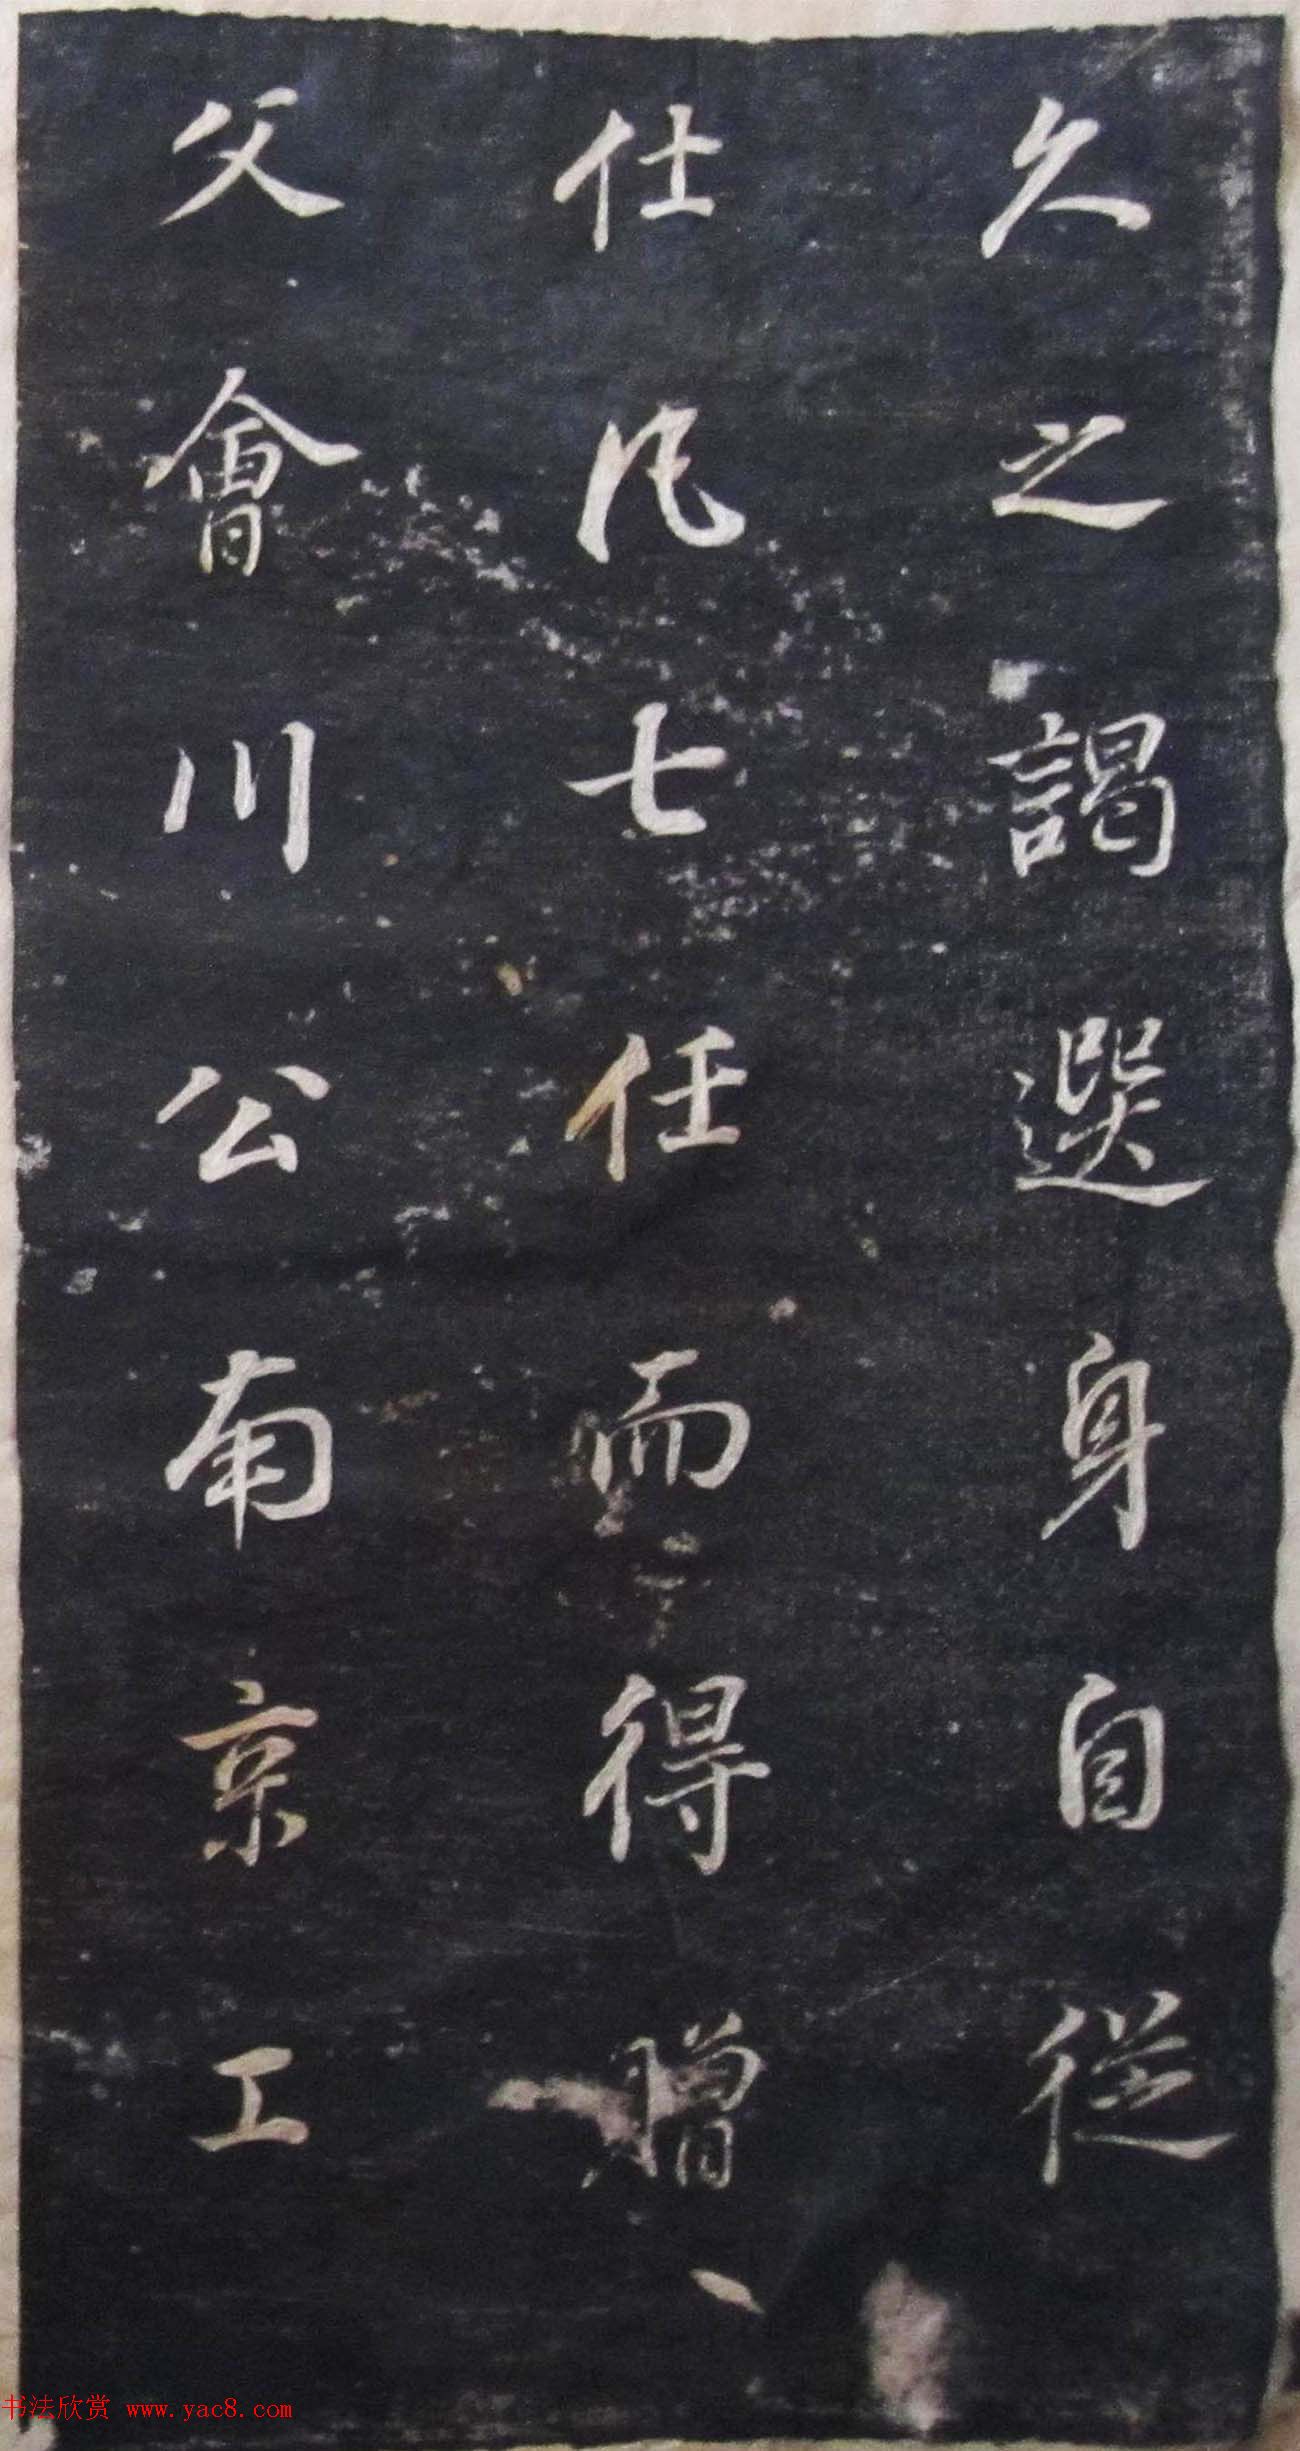 久之謁選身自從
仕凡七任而得贈
父會川公南京工
书法欣赏 www.yac8.com